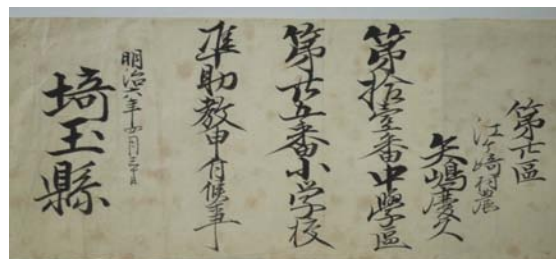 第廿區
江ケ崎村
矢嶋慶久
第拾壹番中學區
第廿五番小学校
准助教申付候事
明治六年 月三十日
埼玉縣